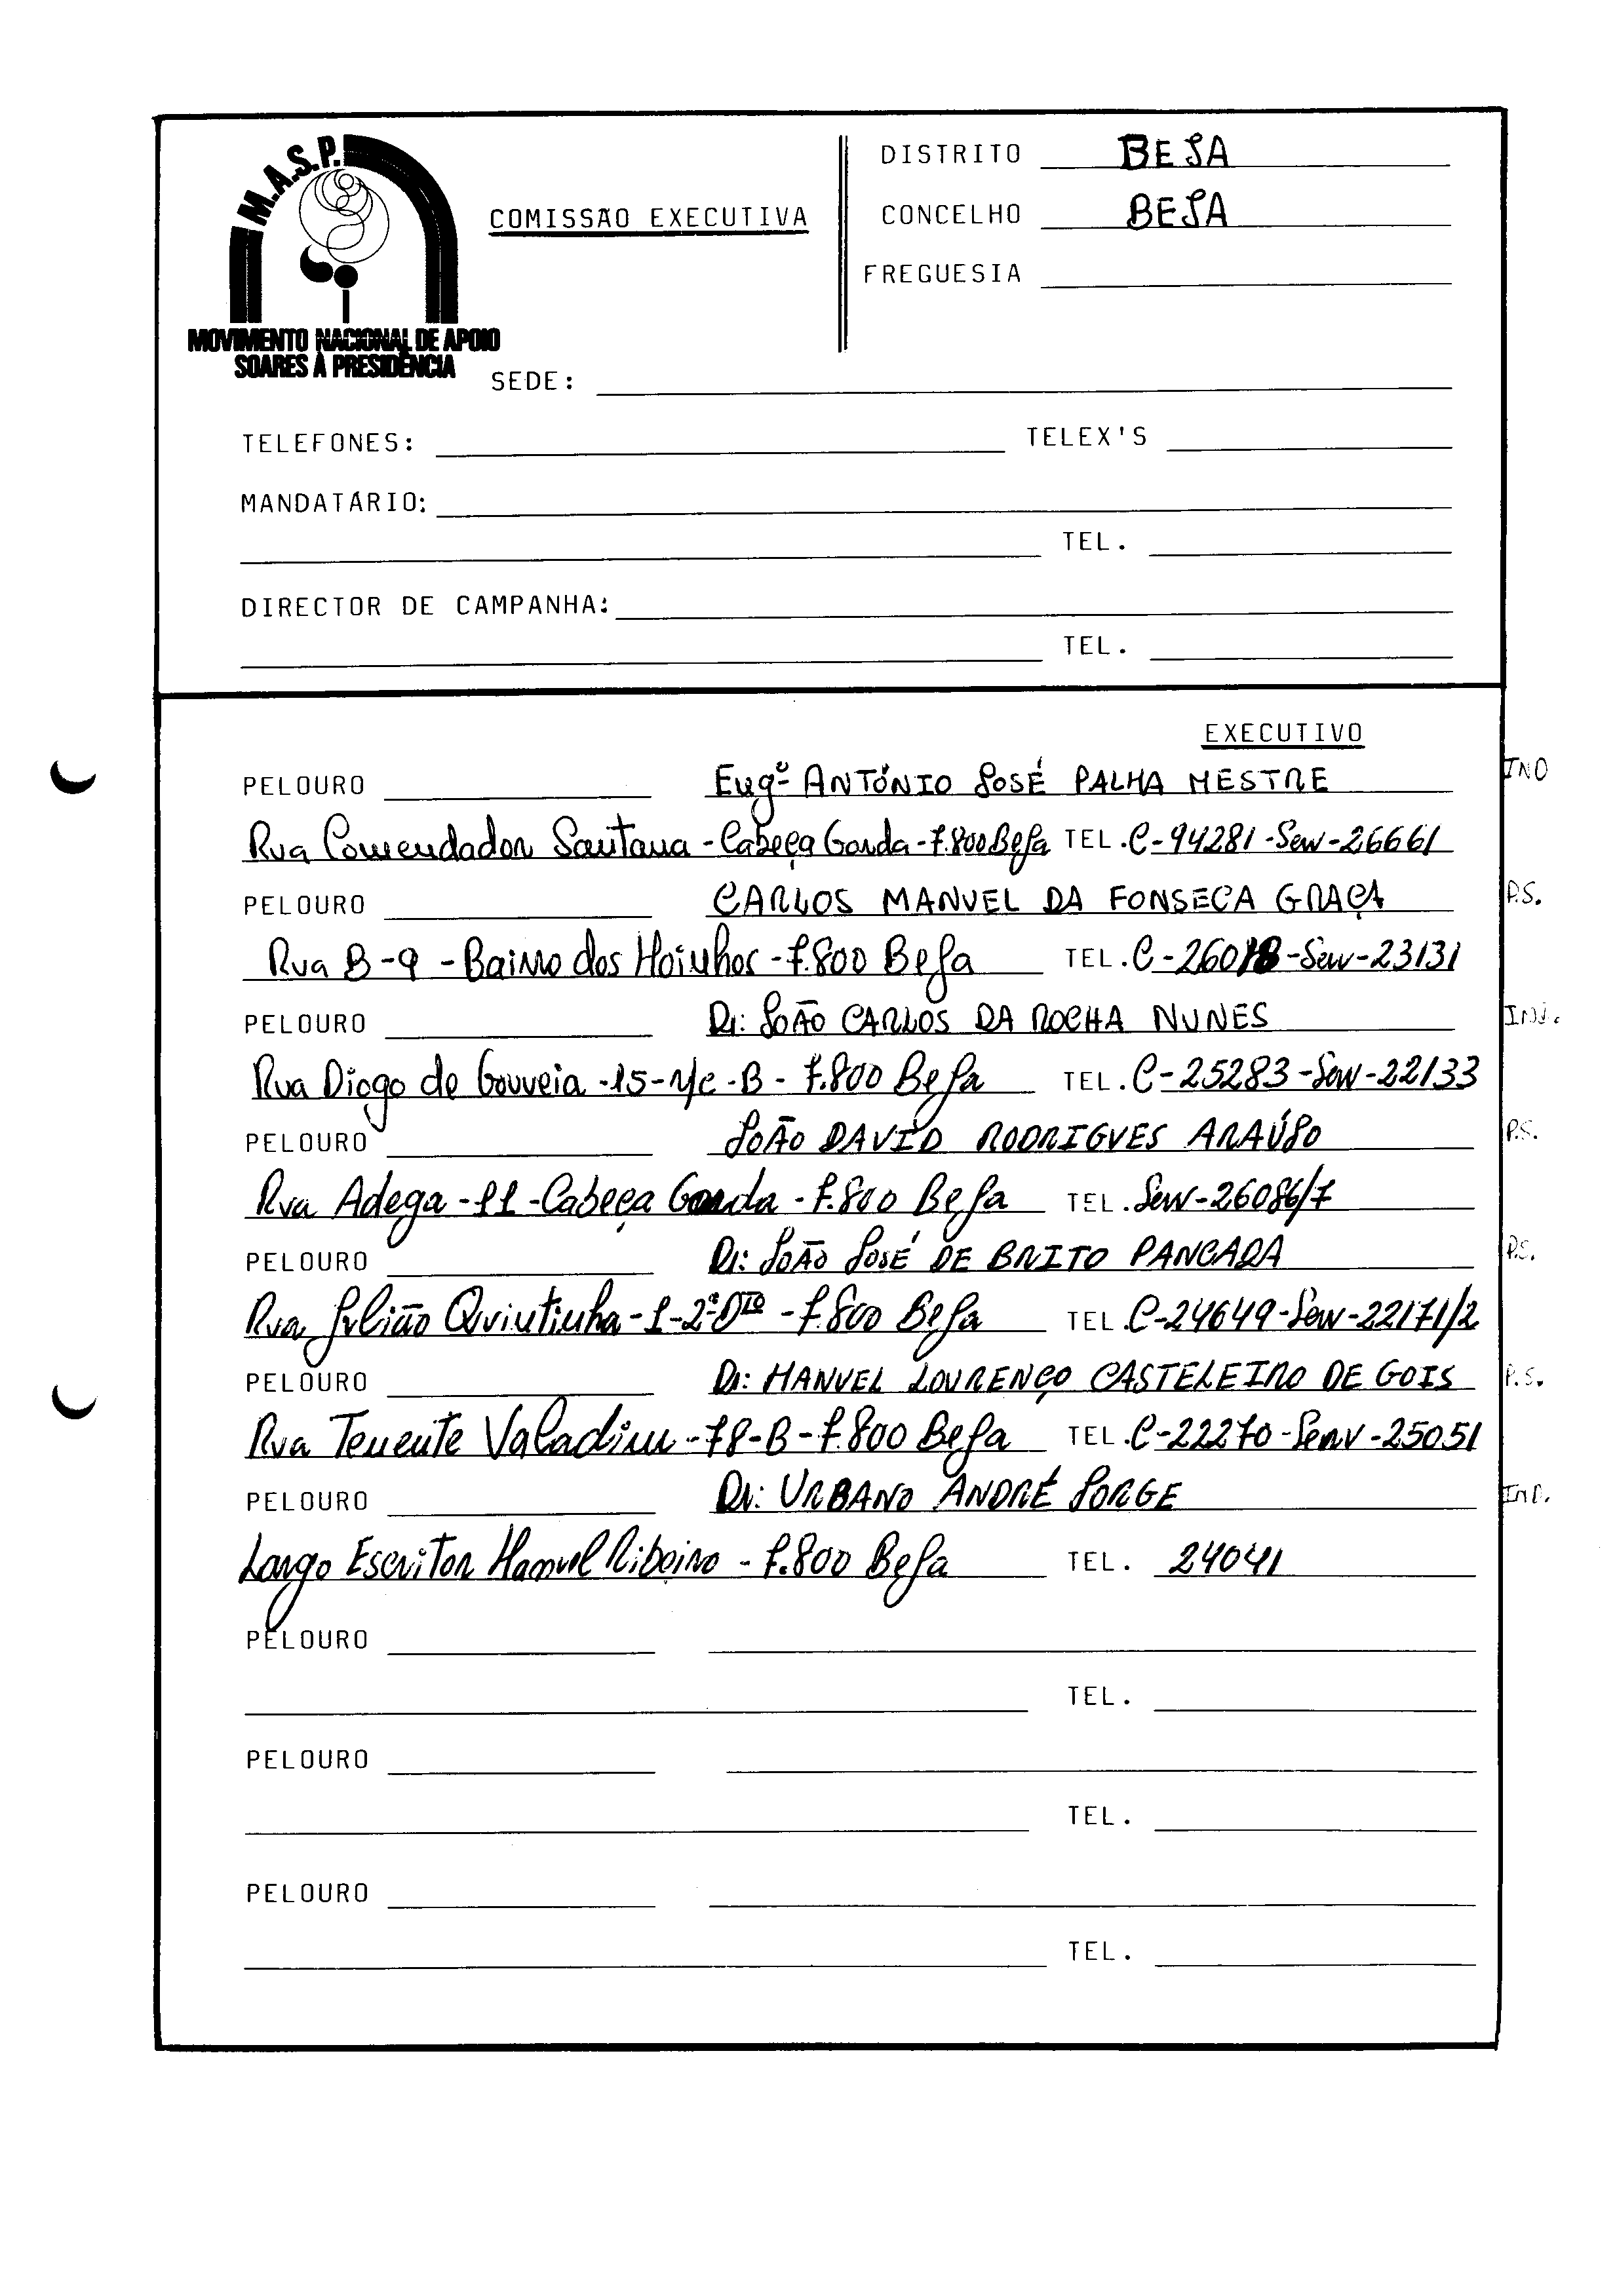 M.A.S.P.
MOVIMENTO NACIONAL DE APOIO
SOARES À PRESIDÊNCIA
COMISSÃO EXECUTIVA
DISTRITO BEJA
CONCELHO BEJA
FREGUESIA
SEDE:
TELEFONES: TELEX'S
MANDATÁRIO:
TEL.
DIRECTOR DE CAMPANHA:
TEL.
EXECUTIVO
PELOURO Engº ANTÓNIO JOSÉ PALHA MESTRE IND
Rua Comendador Santana - Cabeça Gorda - 7.800 Beja TEL. C-94281-Serv-26661
PELOURO CARLOS MANUEL DA FONSECA GRAÇA P.S.
Rua B-9 - Bairro dos Moinhos - 7.800 Beja TEL. C-26018-Serv-23131
PELOURO Dr: JOÃO CARLOS DA ROCHA NUNES IND.
Rua Diogo de Gouveia - 15 - r/c - B - 7.800 Beja TEL. C-25283-Serv-22133
PELOURO JOÃO DAVID RODRIGUES ARAÚJO P.S.
Rua Adega - 11 - Cabeça Gorda - 7.800 Beja TEL. Serv-26086/7
PELOURO Dr: JOÃO JOSÉ DE BRITO PANCADA P.S.
Rua Julião Quintinha - 1 - 2º Dto - 7.800 Beja TEL. C-24649-Serv-22171/2
PELOURO Dr: MANUEL LOURENÇO CASTELEIRO DE GOIS P.S.
Rua Tenente Valadim - 78 - B - 7.800 Beja TEL. C-22270-Serv-25051
PELOURO Dr: URBANO ANDRÉ JORGE IND.
Largo Escritor Manuel Ribeiro - 7.800 Beja TEL. 24041
PELOURO
TEL.
PELOURO
TEL.
PELOURO
TEL.